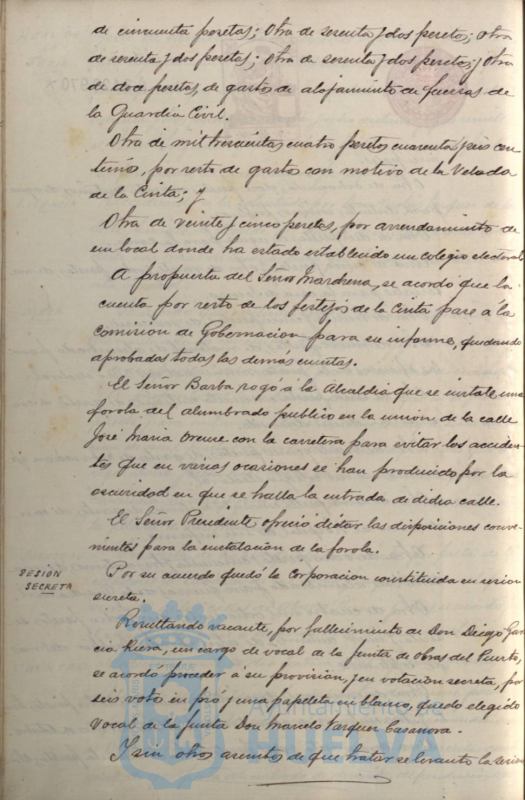 de cincuenta pesetas; Otra de sesenta y dos pesetas; Otra
de sesenta y dos pesetas; Otra de sesenta y dos pesetas; y Otra
de doce pesetas, de gastos de alojamiento de fuerzas de
la Guardia Civil.
Otra de mil trescientas cuatro pesetas cuarenta y seis cen
timos, por resto de gastos con motivo de la Velada
de la Cinta; y
Otra de veinte y cinco pesetas, por arrendamiento de
un local donde ha estado establecido un colegio electoral
A propuesta del Señor Marchena, se acordó que la
cuenta por resto de los festejos de la Cinta pase á la
Comision de Gobernacion para su informe, quedando
aprobadas todas las demás cuentas.
El Señor Barba rogó á la Alcaldia que se instale una
farola del alumbrado publico en la union de la calle
José Maria Orense con la carretera para evitar los acciden
tes que en varias ocasiones se han producido por la
oscuridad en que se halla la entrada de dicha calle.
El Señor Presidente ofreció dictar las disposiciones conve-
nientes para la instalacion de la farola.
SESION
SECRETA
Por su acuerdo quedó la Corporacion constituida en sesion
secreta.
Resultando vacante, por fallecimiento de Don Diego Gar
cia Riera, un cargo de vocal de la Junta de Obras del Puerto,
se acordó proceder á su provision, y en votacion secreta, por
seis votos en pró y una papeleta en blanco, quedó elegido
Vocal de la Junta Don Marcelo Vazquez Casanova.
Y sin otros asuntos de que tratar se levanto la sesion
Ayuntamiento de
HUELVA